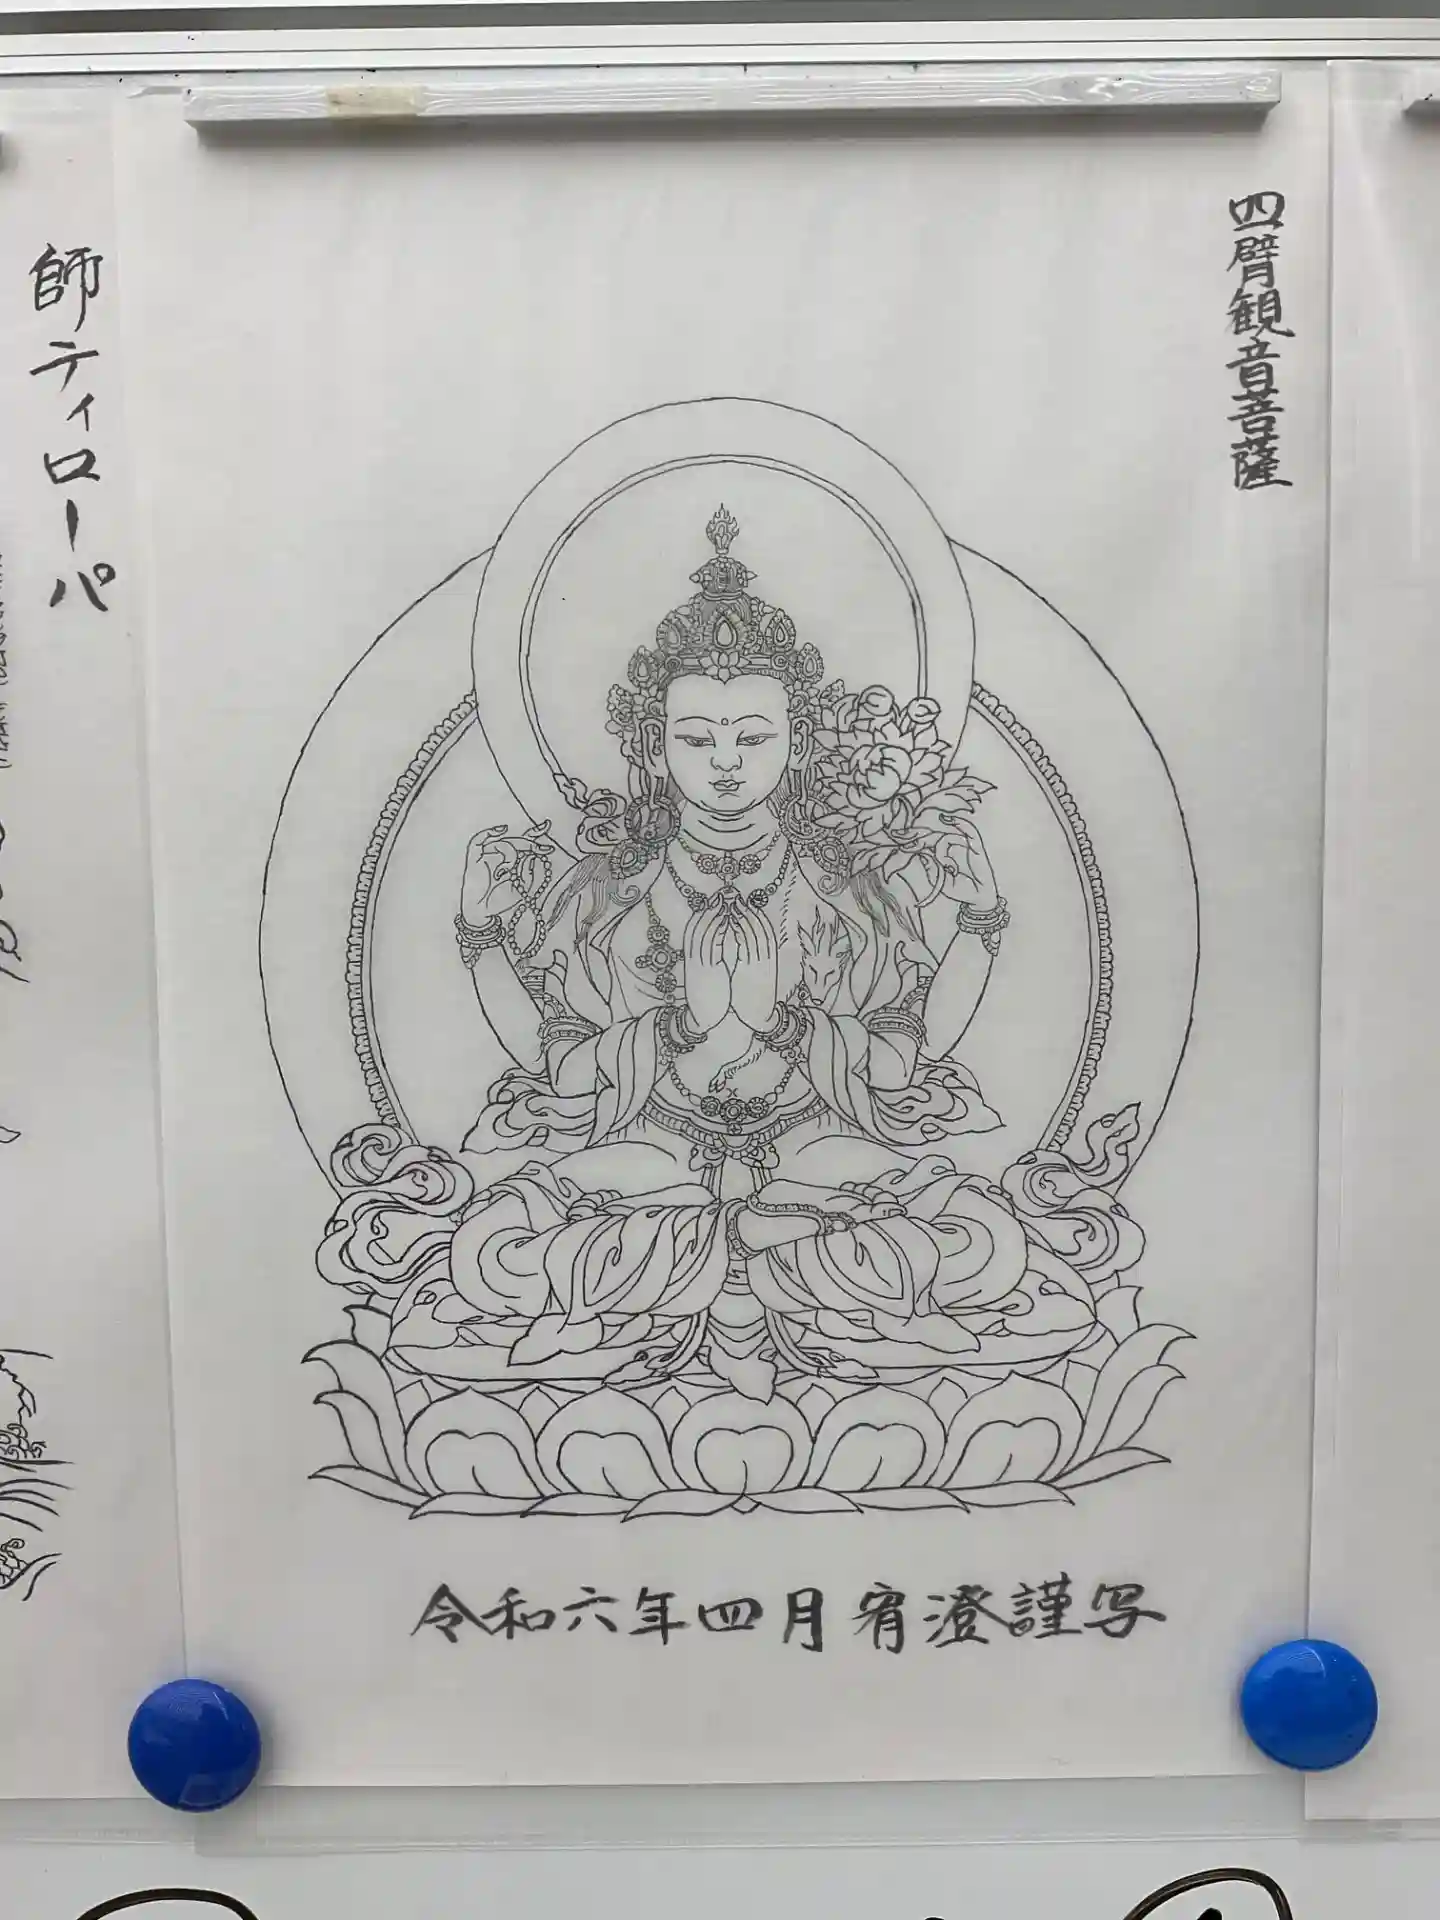 四臂観音菩薩
師ティローパ
令和六年四月宥澄謹写